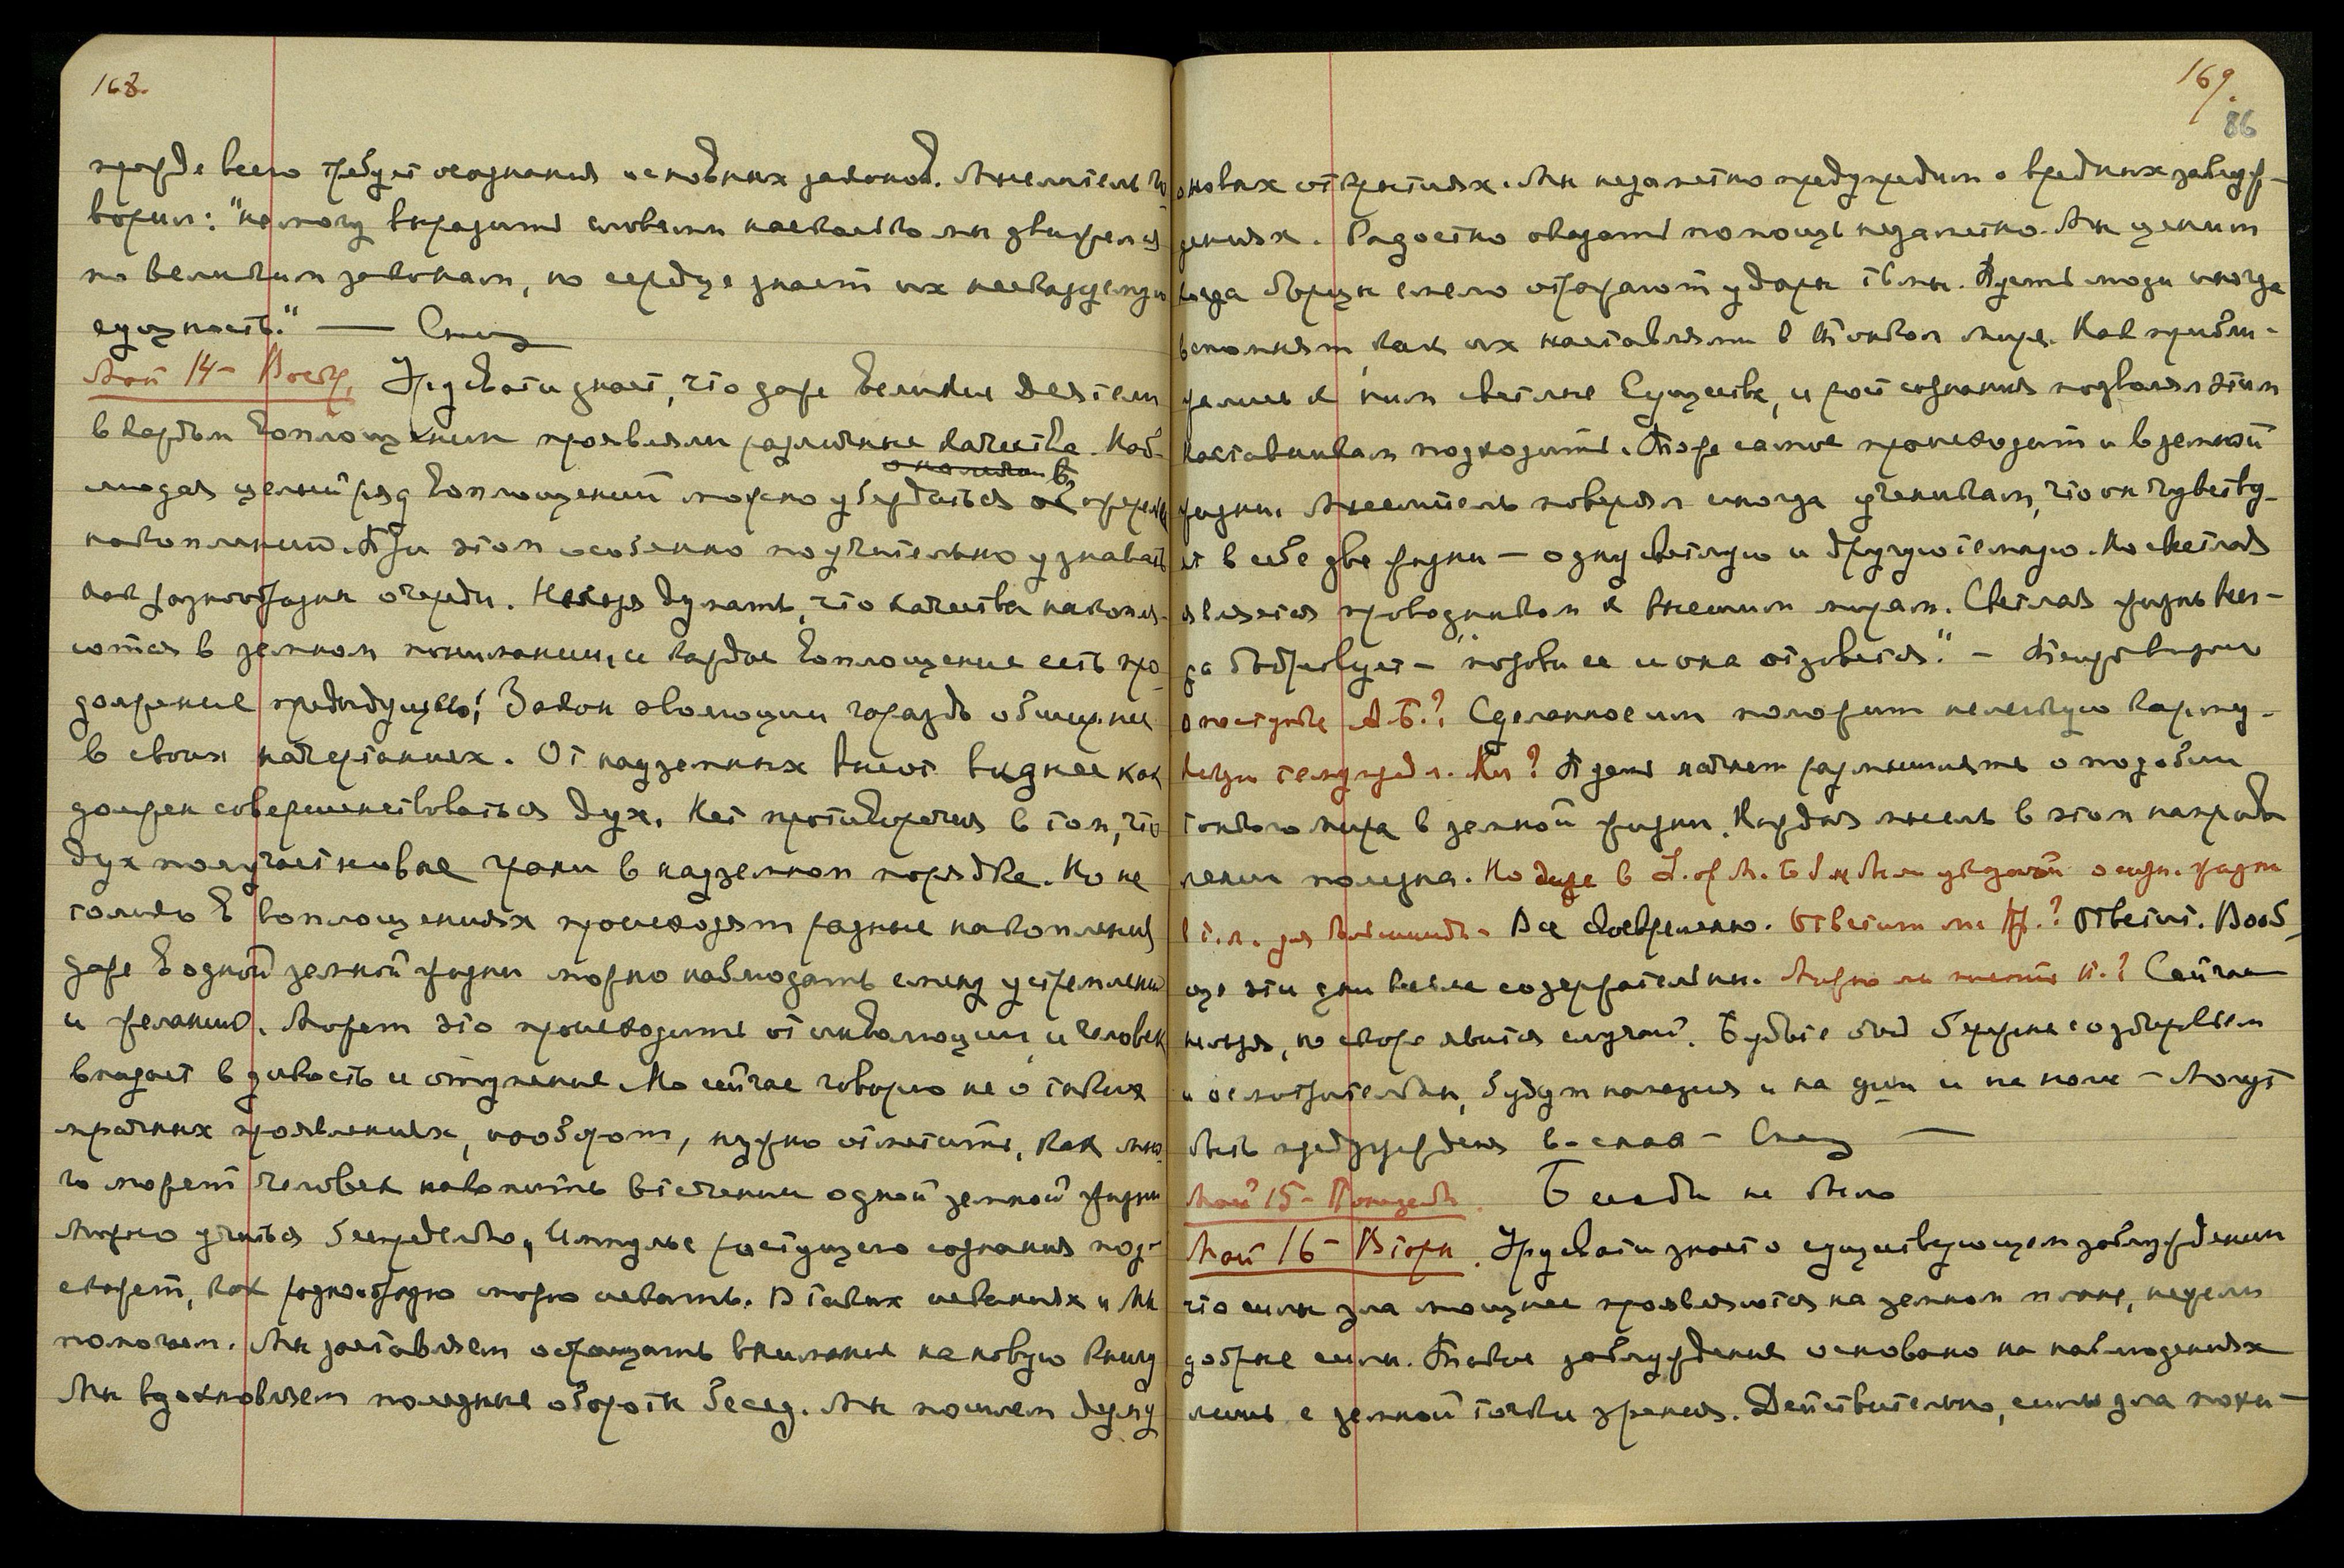 168.
прежде всего требует осознания основных законов. Мыслитель го-
ворил: "не могу выразить словами насколько мы движемся
по великим законам, но сердце знает их несказуемую
сущность." — Спешу
Май 14 – Воскр. Урусвати знает, что даже Великие Деятели
в каждом воплощении проявляли различные качества. Наб-
людая целый ряд воплощений можно убедиться в очереди
накоплений. При этом особенно поучительно узнавать
как разнообразны очереди. Нельзя думать, что качества накопля-
ются в земном понимании, и каждое воплощение есть про-
должение предыдущего! Закон эволюции гораздо обширнее
в своих начертаниях. От надземных высот виднее как
должен совершенствоваться дух. Нет противоречия в том, что
дух получает новые грани в надземном порядке. Но не
только в воплощениях происходят разные накопления
даже в одной земной жизни можно наблюдать смену устремлений
и желаний. Может это происходить от инволюции, и человек
впадает в дикость и отупение. Но сейчас говорю не о таких
мрачных проявлениях, наоборот, нужно отметить, как мно-
го может человек накопить в течении одной земной жизни
Можно учиться беспредельно, Импульс растущего сознания под-
скажет, как разнообразно можно искать. В таких исканиях и Мы
поможем. Мы заставляем обращать внимание на новую книгу
Мы вдохновляем полезные обороты бесед. Мы пошлем думу
169.
86
о новых открытиях. Мы незаметно предупредим о вредных заблуж-
дениях. Радостно оказать помощь незаметно. Мы ценим
когда борцы смело отражают удары тьмы. Пусть люди иногда
вспомнят, как их наставляли в Тонком Мире. Как прибли-
жались к ним светлые Существа, и рост сознания позволял этим
наставникам подходить. Тоже самое происходит и в земной
жизни. Мыслитель поверял иногда ученикам, что он чувству-
ет в себе две жизни — одну светлую и другую темную. Но светлая
является проводником к Высшим мирам. Светлая жизнь всег-
да бодрствует — "позови ее и она отзовется." –
о поступке А.Б.? Сделанное им положит нелегкую карму –
Пусть начнет размышлять о подобии
тонкого мира в земной жизни. Каждая мысль в этом направ-
лении полезна. Но даже в L. of M.
Все своевременно. Ответит ли Пр.? Ответит. Вооб-
ще эти дни весьма содержательны. Можно ли Сейчас
нельзя, но скоро явится случай. Будьте оба бережны со здоровьем
и осмотрительны, будут полезны и на дни и на ночи – Могут
быть предупреждения во снах – Спешу —
Май 15 – Понедель. Беседы не было
Май 16 – Вторн. Урусвати знает о существующем заблуждении
что силы зла мощнее проявляются на земном плане, нежели
добрые силы. Такое заблуждение основано на наблюдениях
лишь с земной точки зрения. Действительно, силы зла поки-